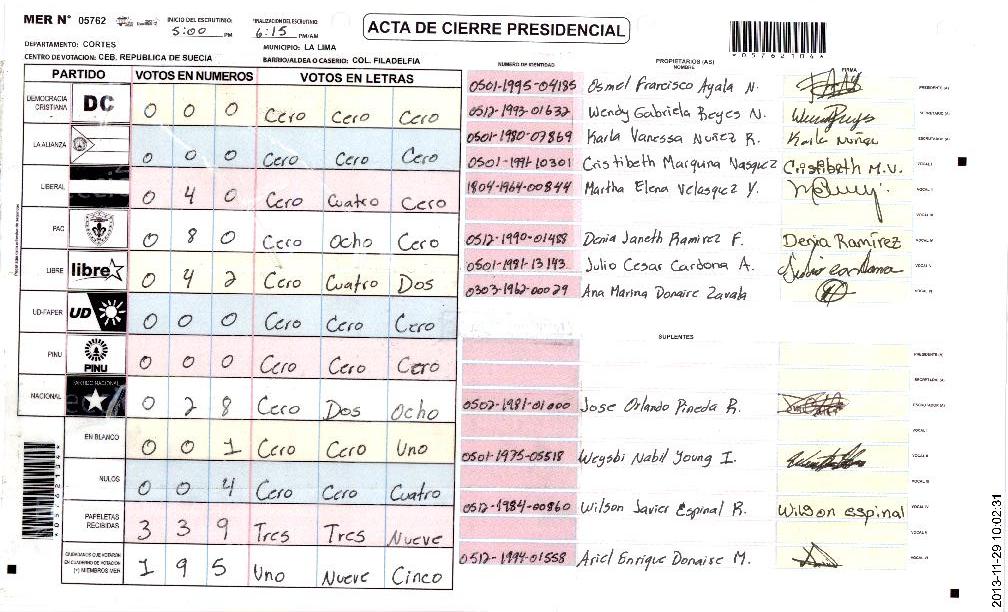 MER N° 05762
INICIO DEL ESCRUTINIO:
5:00 PM
FINALIZACION DEL ESCRUTINIO:
6:15 PM/AM
ACTA DE CIERRE PRESIDENCIAL
*05762106*
DEPARTAMENTO: CORTES
MUNICIPIO: LA LIMA
CENTRO DE VOTACION: CEB. REPUBLICA DE SUECIA
BARRIO/ALDEA O CASERIO: COL. FILADELFIA
PARTIDO VOTOS EN NUMEROS VOTOS EN LETRAS
DEMOCRACIA CRISTIANA DC 0 0 0 Cero Cero Cero
LA ALIANZA 0 0 0 Cero Cero Cero
LIBERAL 0 4 0 Cero Cuatro Cero
PAC 0 8 0 Cero Ocho Cero
LIBRE libre 0 4 2 Cero Cuatro Dos
UD-FAPER UD 0 0 0 Cero Cero Cero
PINU PINU 0 0 0 Cero Cero Cero
NACIONAL PARTIDO NACIONAL 0 2 8 Cero Dos Ocho
EN BLANCO 0 0 1 Cero Cero Uno
NULOS 0 0 4 Cero Cero Cuatro
PAPELETAS RECIBIDAS 3 3 9 Tres Tres Nueve
CIUDADANOS QUE VOTARON EN CUADERNO DE VOTACION (+) MIEMBROS MER 1 9 5 Uno Nueve Cinco
NUMERO DE IDENTIDAD PROPIETARIOS (AS) NOMBRE FIRMA
0501-1995-04185 Osmel Francisco Ayala N. PRESIDENTE (A)
0512-1993-01632 Wendy Gabriela Reyes N. SECRETARIO (A)
0501-1980-07869 Karla Vanessa Nuñez R. Karla Nuñez ESCRUTADOR (A)
0501-1991-10301 Cristibeth Marquina Vasquez Cristibeth M.V. VOCAL I
1804-1964-00844 Martha Elena Velasquez Y. VOCAL II
VOCAL III
0512-1990-01488 Denia Janeth Ramirez F. Denia Ramírez VOCAL IV
0501-1981-13143 Julio Cesar Cardona A. Julio Cardona VOCAL V
0303-1962-00029 Ana Marina Donaire Zavala VOCAL VI
SUPLENTES
PRESIDENTE (A)
SECRETARIO (A)
0502-1981-01000 Jose Orlando Pineda R. ESCRUTADOR (A)
VOCAL I
0501-1975-05518 Weysbi Nabil Young I. VOCAL II
VOCAL III
0512-1984-00860 Wilson Javier Espinal R. Wilson espinal VOCAL IV
VOCAL V
0512-1994-01558 Ariel Enrique Donaire M. VOCAL VI
2013-11-29 10:02:31